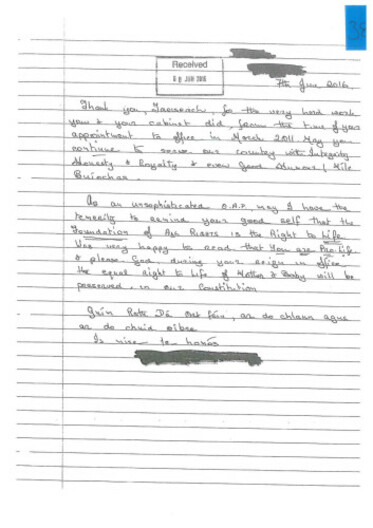 38
Received
08 JUN 2016
7th Jun 2016.
Thank you, Taoiseach, for the very hard work
you & your cabinet did, from the time of your
appointment to office in March 2011. May you
continue to serve our country with Integrity
Honesty & Loyalty & even Good Humour! Míle
Buíochas.
As an unsophisticated O.A.P. may I have the
temerity to remind your good self that the
Foundation of All Rights is the Right to Life
very happy to read that You are Pro-Life
& please God, during your reign in office
the equal Right to Life of Mother & Baby will be
preserved in our Constitution
Dé ort féin, ar do chlann agus
ar do chuid oibre
Is mise le